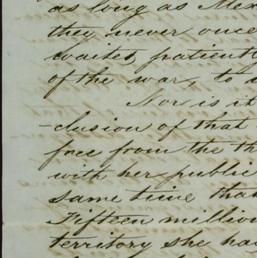 as long as Mex
they never once
waited patientl
of the war, to
Nor is it
-clusion of that
free from the th
with her public
same time than
Fifteen million
territory she had